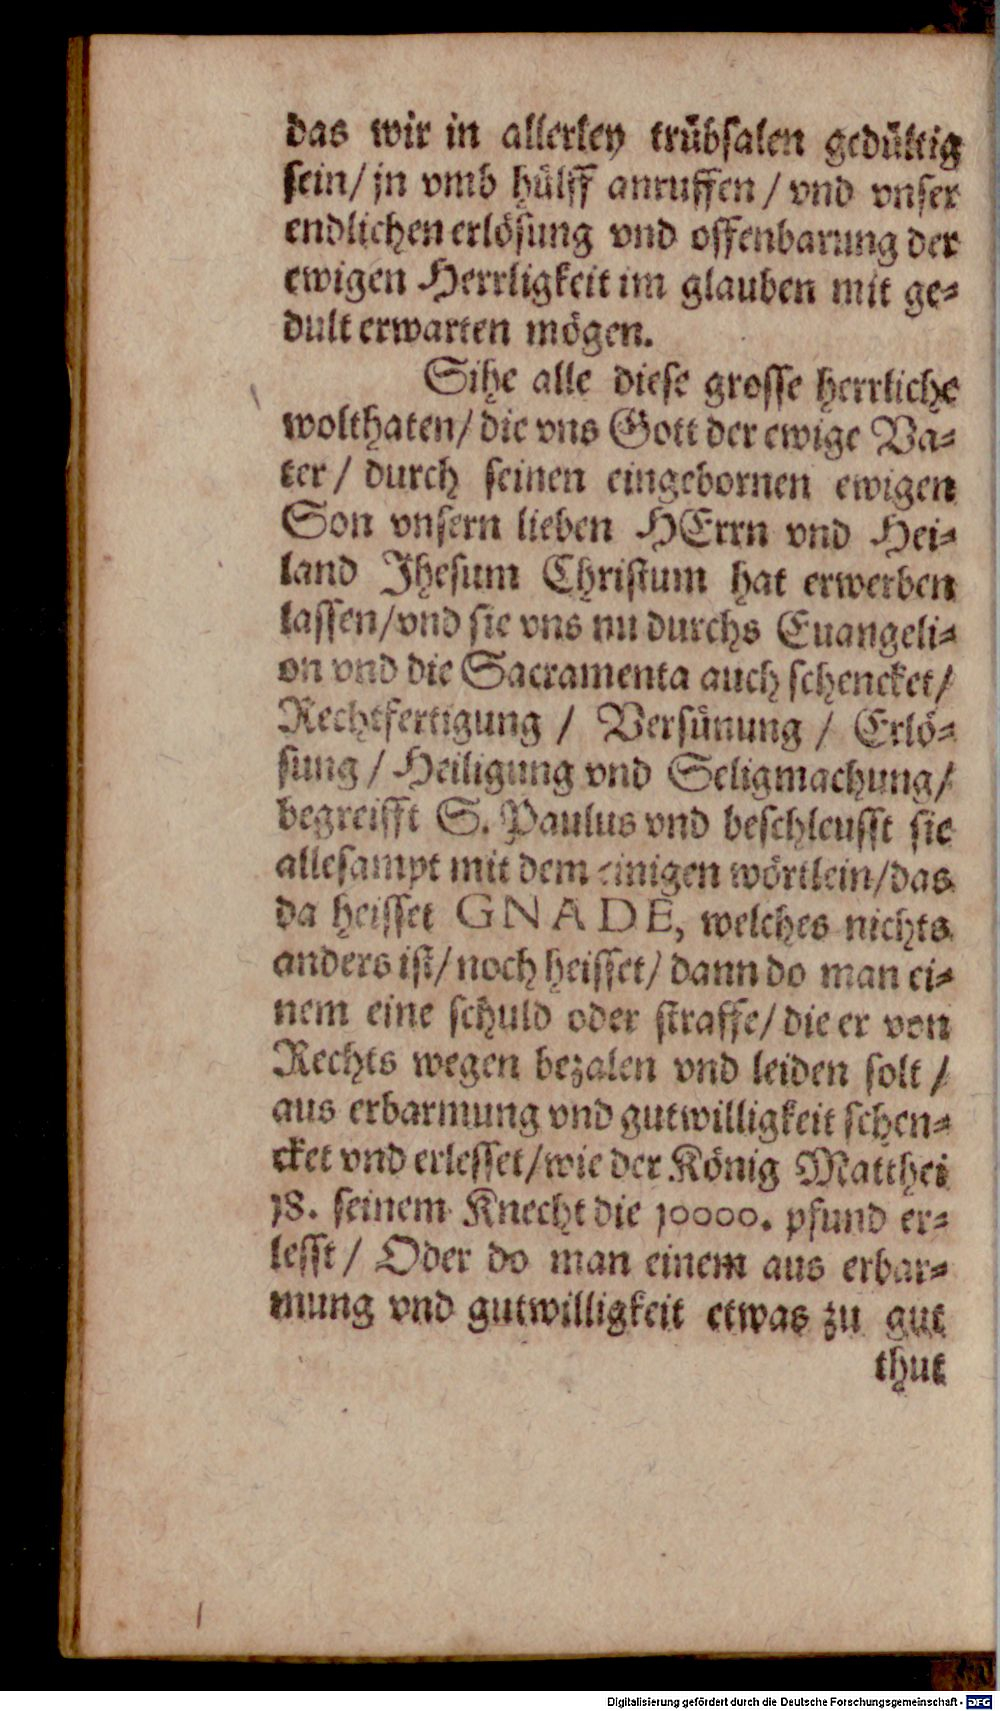 das wir in allerley trübsalen gedültig
sein/ jn vmb hülff anruffen / vnd vnser
endlichen erlösung vnd offenbarung der
ewigen Herrligkeit im glauben mit ge⸗
dult erwarten mögen.
Sihe alle diese grosse herrliche
wolthaten/ die vns Gott der ewige Va⸗
ter / durch seinen eingebornen ewigen
Son vnsern lieben HErrn vnd Hei⸗
land Jhesum Christum hat erwerben
lassen/ vnd sie vns nu durchs Euangeli⸗
on vnd die Sacramenta auch schencket/
Rechtfertigung / Versünung / Erlö⸗
sung / Heiligung vnd Seligmachung/
begreifft S. Paulus vnd beschleusst sie
allesampt mit dem einigen wörtlein/ das
da heisset GNADE, welches nichts
anders ist/ noch heisset/ dann do man ei⸗
nem eine schuld oder straffe/ die er von
Rechts wegen bezalen vnd leiden solt /
aus erbarmung vnd gutwilligkeit schen⸗
cket vnd erlesset/ wie der König Matthei
18. seinem Knecht die 10000. pfund er⸗
lesst / Oder do man einem aus erbar⸗
mung vnd gutwilligkeit etwas zu gut
thut
Digitalisierung gefördert durch die Deutsche Forschungsgemeinschaft - DFG